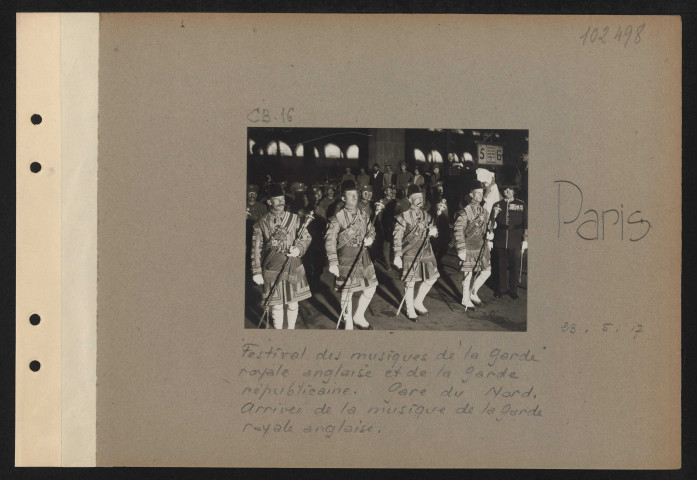 102498
CB-16
S G
Paris
23.5.17
Festival des musiques de la garde
royale anglaise et de la garde
républicaine. Gare du Nord.
Arrivée de la musique de la garde
royale anglaise.